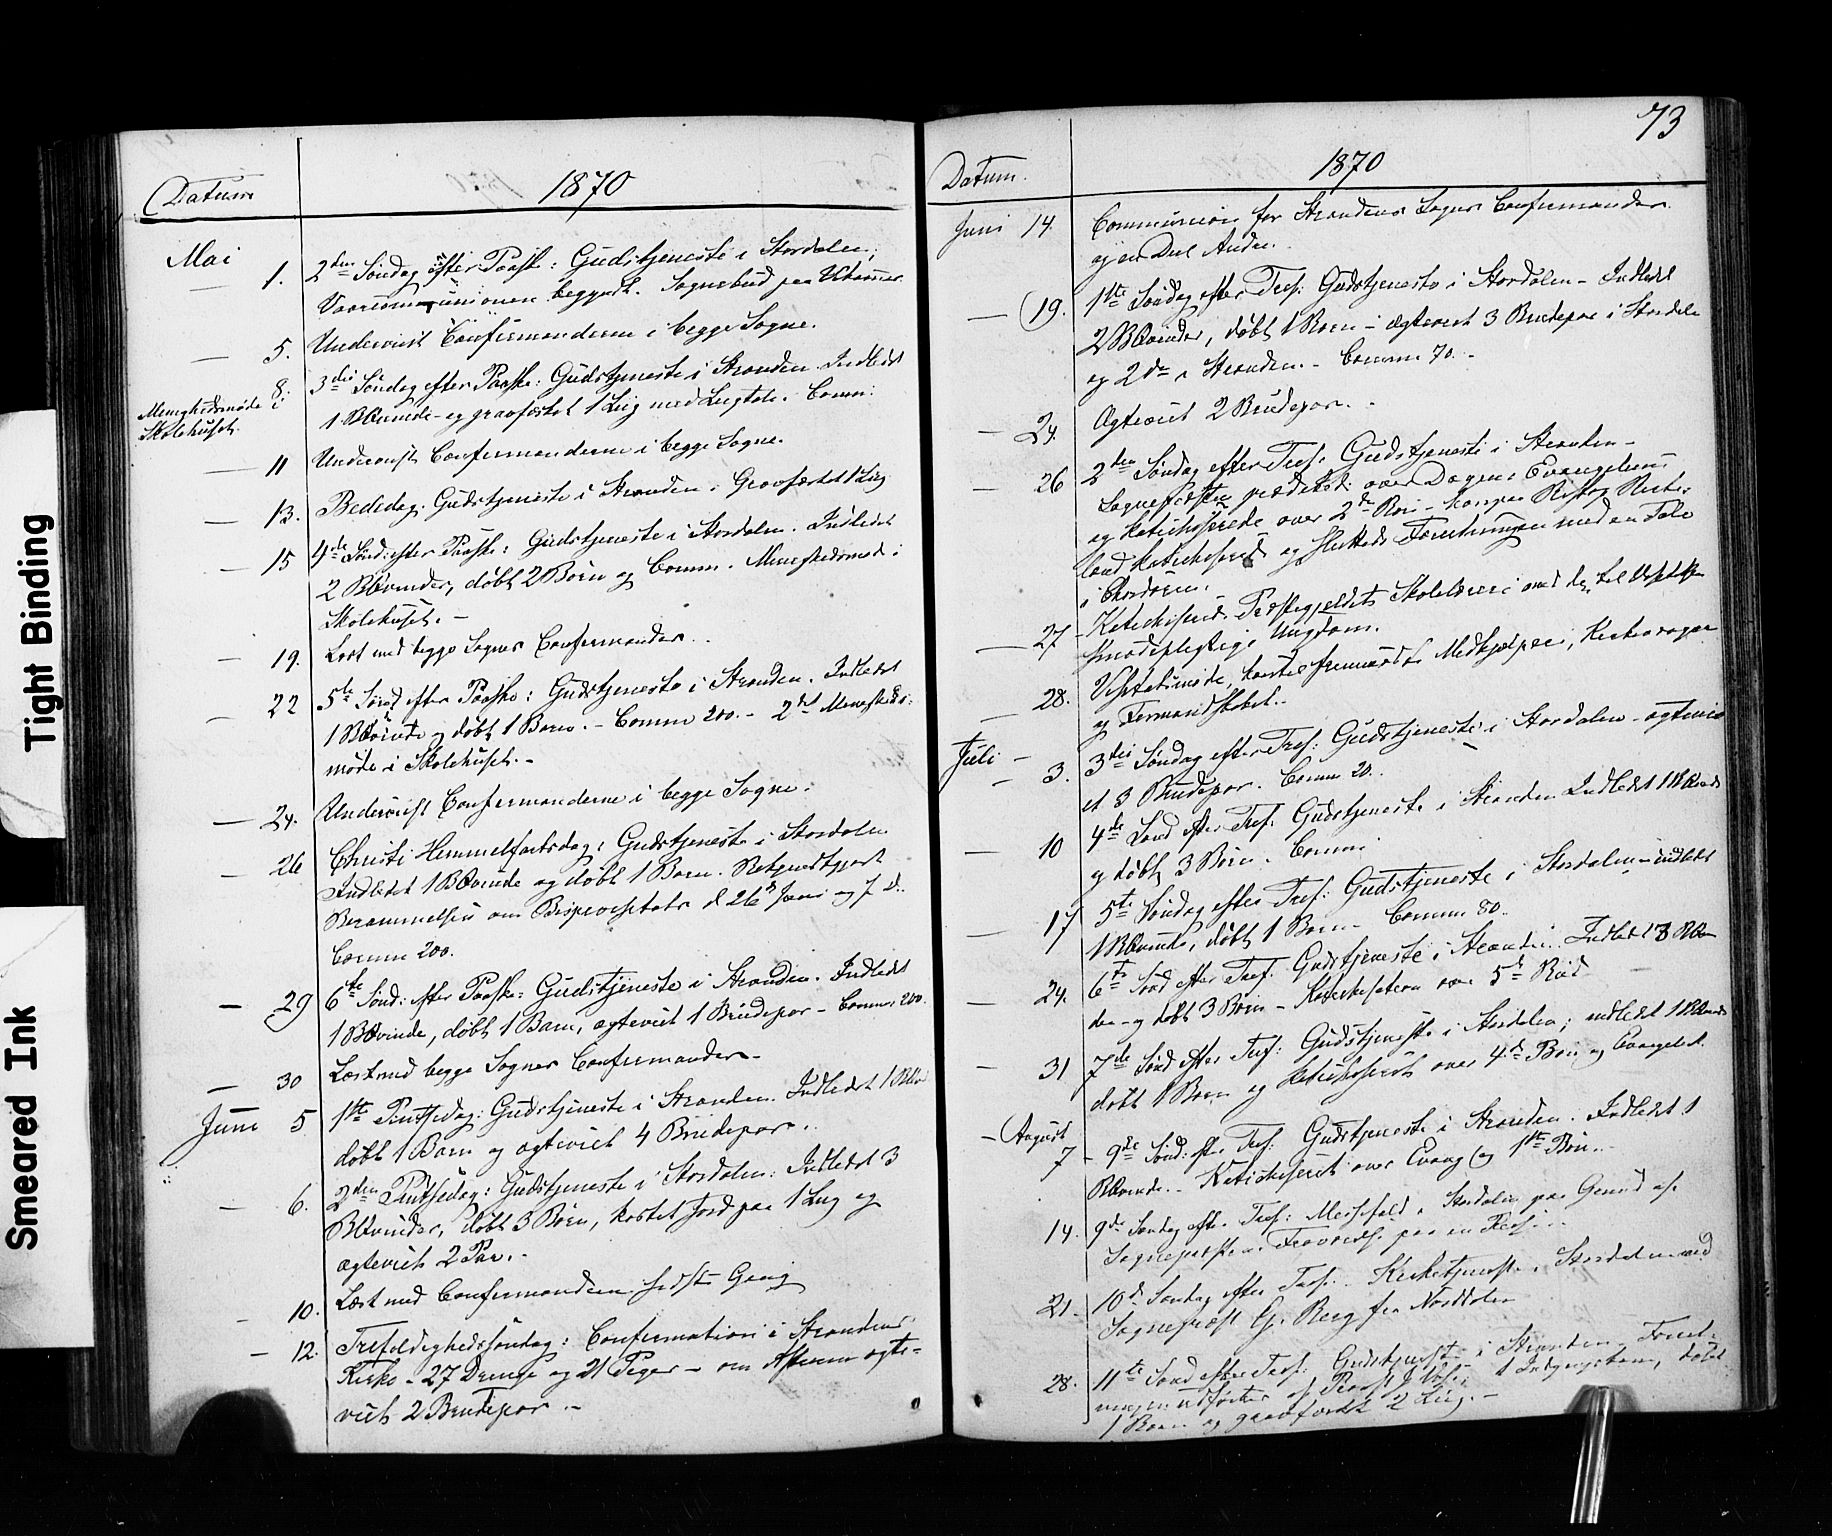 Tight Binding
Smeared Ink
Datum
1870
Mai
1. 2den Søndag efter Paaske: Gudstjeneste i Stordalen;
Vaarcommunionen begyndt. Sognebud paa
5. Undervist Confirmanderne i begge Sogne.
8. 3die Søndag efter Paaske: Gudstjeneste i Stranden. Indledet
Menighedsmøde i
Skolehuset.
1 BKvinde og gravfæstet 1 Liig med Liigtale. Comm:
11 Undervist Confirmanderne i begge Sogne.
13. Bededag. Gudstjeneste i Stranden. Gravfæstet 1 Liig
15 4de Sønd: efter Paaske: Gudstjeneste i Stordalen. Indledet
2 BKvinder, døbt 2 Børn og Comm. Menighedsmøde i
Skolehuset. –
19. Læst med begge Sognes Confirmander.
22 5te Sønd efter Paaske: Gudstjeneste i Stranden. Indledet
1 BKvinde og døbt 1 Barn. – Comm 200. – 2det Menigheds-
møde i Skolehuset. –
24. Undervist Confirmanderne i begge Sogne.
26 Christi Himmelfartsdag: Gudstjeneste i Stordalen
Indledet 1 BKvinde og døbt 1 Barn.
Berammelsen om Bispevisitats d 26 Juni og f. D.
Comm 200.
29 6te Sønd: efter Paaske: Gudstjeneste i Stranden. Indledet
1 BKvinde, døbt 1 Barn, ægteviet 1 Brudepar – Comm: 200.
30 Læst med begge Sognes Confirmander –
Juni 5. 1ste Pintsedag: Gudstjeneste i Stranden. Indledet 1 BKv
døbt 1 Barn og ægteviet 4 Brudepar.
6. 2den Pintsedag: Gudstjeneste i Stordalen: Indledet 3
BKvinder, døbt 3 Børn, kastet Jord paa 1 Liig og
ægteviet 2 Par. –
10. Læst med Confirmanderne sidste Gang
12. Trefoldighedssøndag: Confirmation i Strandens
Kirke – 27 Drenge og 21 Piger – om Aftenen ægte-
viet 2 Brudepar –
73
Datum.
1870
Juni 14. Communion for Strandens Sogns Confirmander
og en Deel Andre.
19. 1ste Søndag efter Tref: Gudstjeneste i Stordalen – Indledet
2 BKvinder, døbt 1 Barn – ægteviet 3 Brudepar i Stordalen
og 2 do i Stranden. – Comm 70. –
24. Ægteviet 2 Brudepar. –
26 2den Søndag efter Tref: Gudstjeneste i Stranden –
Sognepræsten prædikede over Dagens Evangelium
og katechiserede over 2den Bøn –
katechiserede og sluttede Forretningen med en Tale
i Chordøren.
27 – Katechiserede Præstegjeldets Skolelærere med den til Visitats
mødepligtige Ungdom.
28. Visitatsmøde, Medhjelpere, Kirkeværger
og Formandskabet. –
Juli – 3. 3die Søndag efter Tref: Gudstjeneste i Stordalen – ægtevi
et 3 Brudepar. Comm 20.
10 4de Sønd efter Tref: Gudstjeneste i Stranden Indledet 1 BKvinde
og døbt 3 Børn. Comm:
17 5te Søndag efter Tref: Gudstjeneste i Stordalen – indledet
1 BKvinde, døbt 1 Barn – Comm 80.
24. 6te Sønd efter Tref. Gudstjeneste i Stranden. Indledet 3 BKvin
der – og døbt 3 Børn – Katechisation over 5te Bud
31 7de Sønd efter Tref: Gudstjeneste i Stordalen; indledet 1 BKvinde
døbt 1 Barn og katechiseret over 4de Bøn og Evangeliet.
August
7 – 9de Sønd: efter Tref: Gudstjeneste i Stranden. Indledet 1
BKvinde. – Katechiseret over Evang og 1ste Bøn. –
14. 9de Søndag efter Tref: Messefald i Stordalen paa Grund af
Sognepræstens Fraværelse paa en Reise. –
21. 10de Søndag efter Tref: Kirketjeneste i Stordalen ved
Sognepræst G. Berg fra Norddalen
28. 11te Sønd efter Tref: Gudstjeneste i Stranden – Forret-
ningen udførtes af Provst 1 Indgangskone, døbt
1 Barn og gravfæstet 2 Liig. –